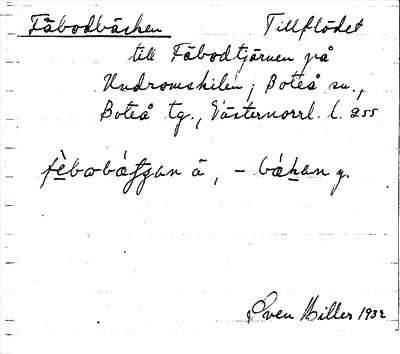 Fäbodbäcken Tillflödet
till Fäbodtjärnen på
Undromskilen; Boteå sn.,
Boteå tg., Västernorrl. l. 255
ä, – y.
Sven Hiller 1932